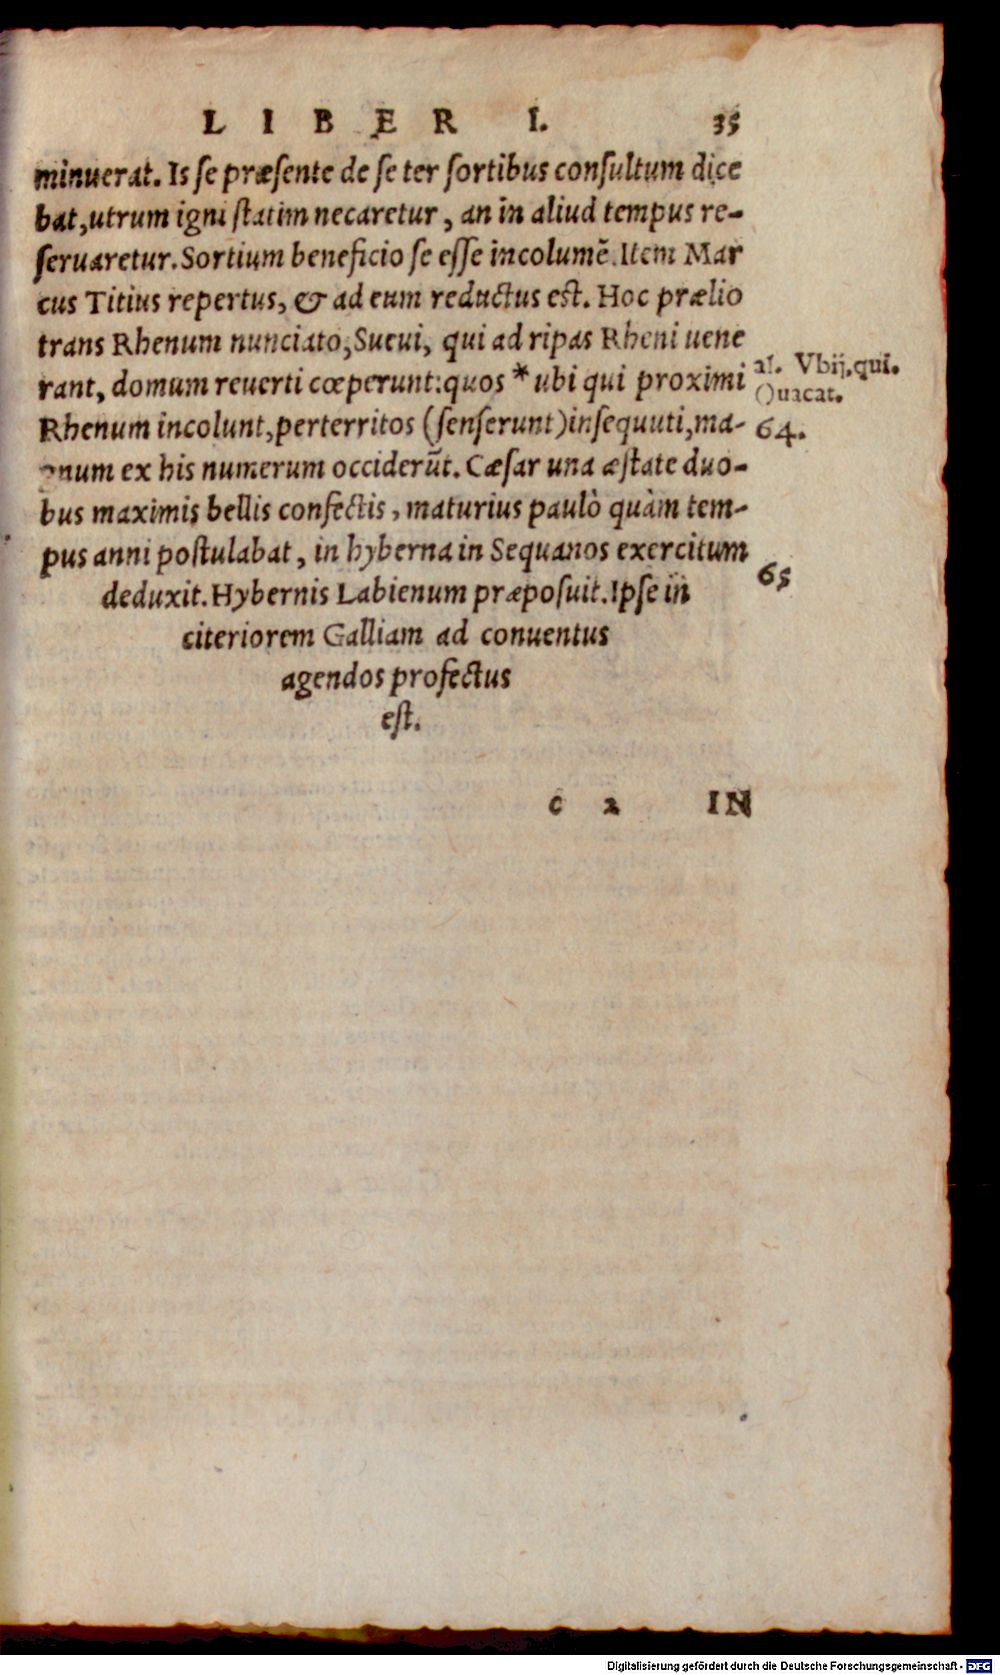 LIBER I. 35
minuerat. Is se præsente de se ter sortibus consultum dice
bat, utrum igni statim necaretur, an in aliud tempus re-
seruaretur. Sortium beneficio se esse incolumẽ. Item Mar
cus Titius repertus, & ad eum reductus est. Hoc prælio
trans Rhenum nunciato, Sueui, qui ad ripas Rheni uene
rant, domum reuerti cœperunt: quos * ubi qui proximi
al. Vbij. qui.
Qui uacat.
Rhenum incolunt, perterritos (senserunt) insequuti, ma-
64.
gnum ex his numerum occiderũt. Cæsar una æstate duo-
bus maximis bellis confectis, maturius paulò quàm tem-
pus anni postulabat, in hyberna in Sequanos exercitum
65
deduxit. Hybernis Labienum præposuit. Ipse in
citeriorem Galliam ad conuentus
agendos profectus
est.
c 2 IN
Digitalisierung gefördert durch die Deutsche Forschungsgemeinschaft - DFG